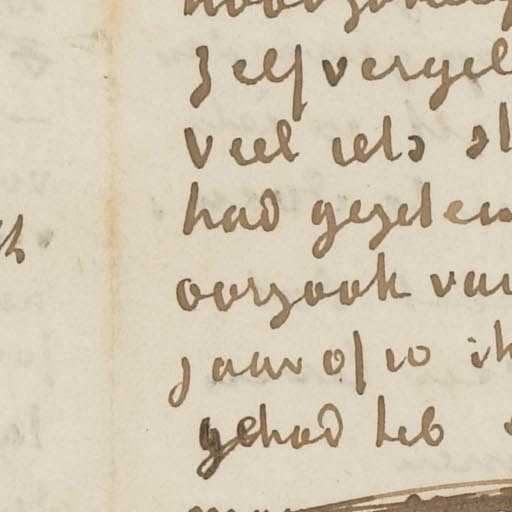 zelfvergel
veel iets sl
had gezeten
oorzaak van
jaar of 10 ik
gehad heb